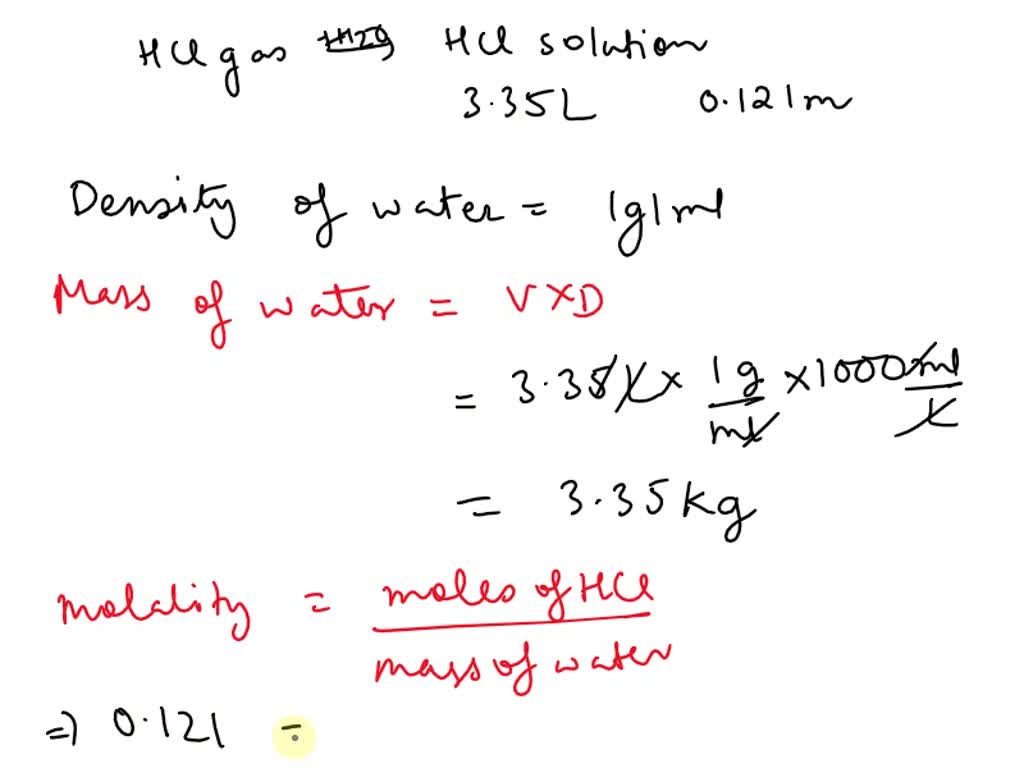 HCl gas HCl solution
3.35L 0.121m
Density of water = 1g/ml
Mass of water = V×D
= 3.35L × 1g/ml × 1000ml/L
= 3.35kg
Molality = moles of HCl / mass of water
=) 0.121 =